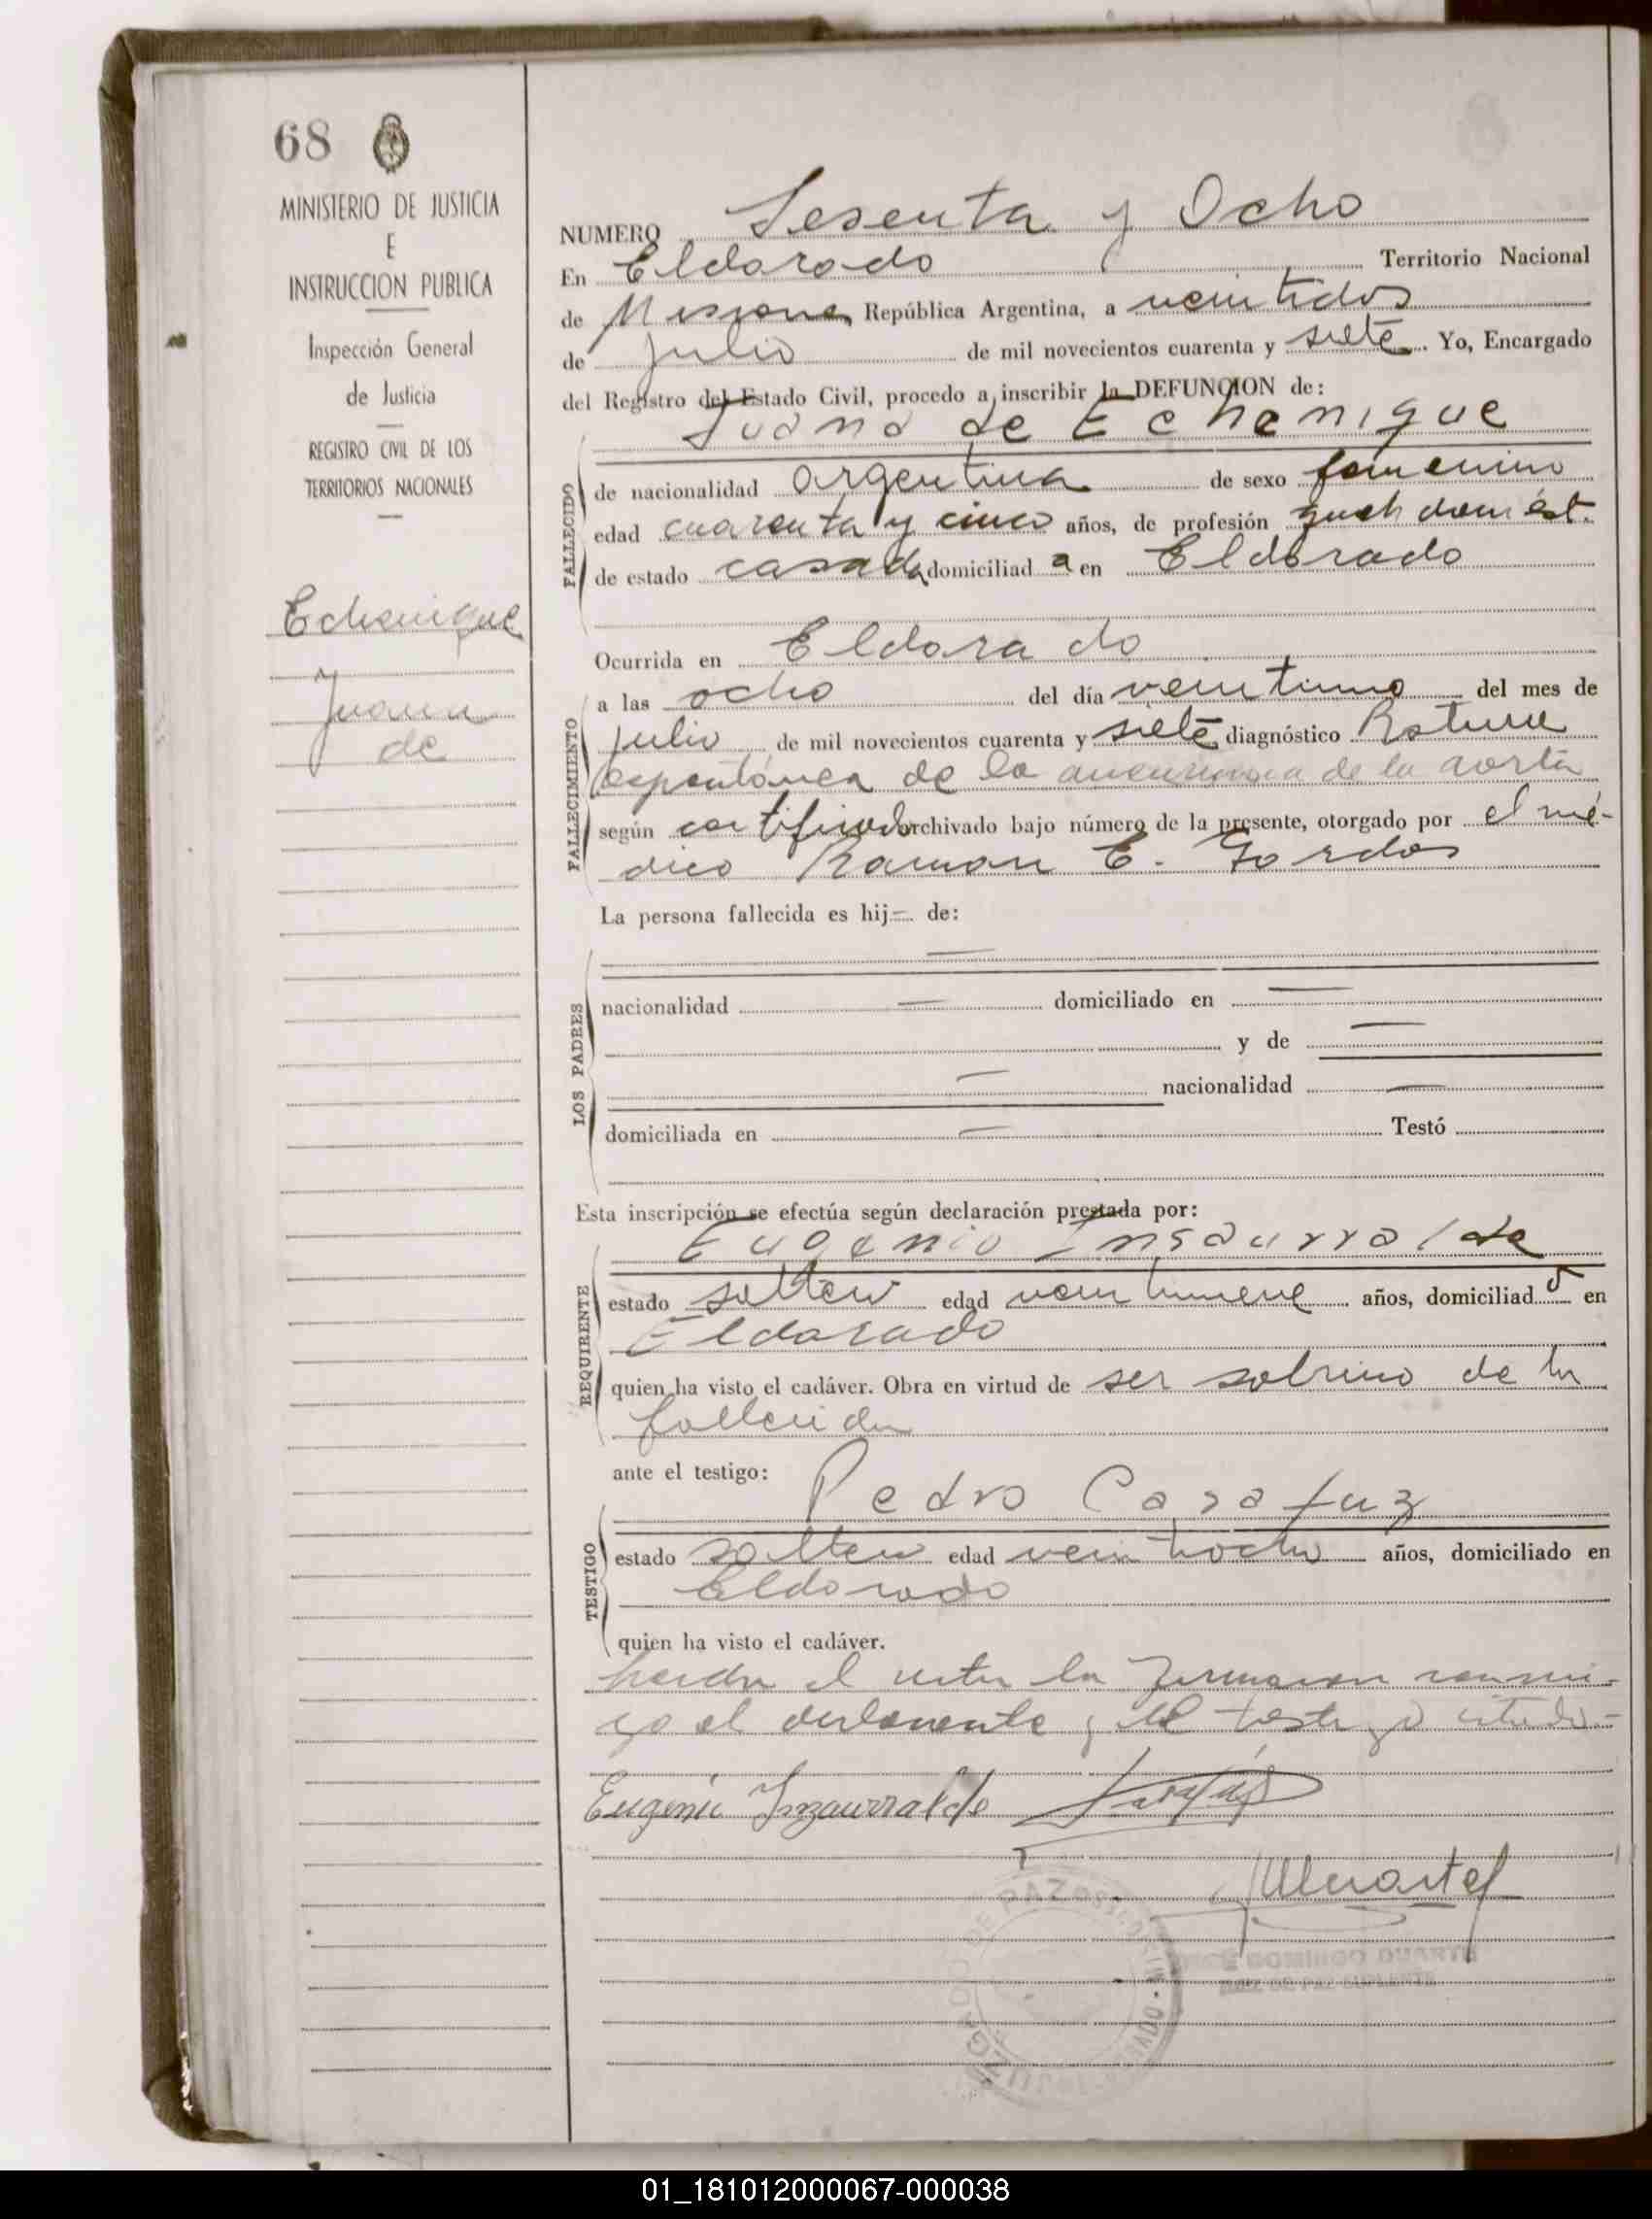 68
MINISTERIO DE JUSTICIA
E
INSTRUCCION PUBLICA
Inspección General
de Justicia
REGISTRO CIVIL DE LOS
TERRITORIOS NACIONALES
Echenique
Juana
de
NUMERO Sesenta y Ocho
En Eldorado Territorio Nacional
de Misiones República Argentina, a veintidos
de julio de mil novecientos cuarenta y siete. Yo, Encargado
del Registro del Estado Civil, procedo a inscribir la DEFUNCION de:
Juana de Echenique
FALLECIDO
de nacionalidad argentina de sexo femenino
edad cuarenta y cinco años, de profesión queh domést.
de estado casada domiciliada en Eldorado
FALLECIMIENTO
Ocurrida en Eldorado
a las ocho del día veintiuno del mes de
julio de mil novecientos cuarenta y siete diagnóstico
espontánea de la de la aorta
según certificado archivado bajo número de la presente, otorgado por el mé-
dico Ramon E.
La persona fallecida es hij— de:
LOS PADRES
—
nacionalidad — domiciliado en —
y de —
— nacionalidad —
domiciliada en — Testó
Esta inscripción se efectúa según declaración prestada por:
Eugenio Insaurralde
REQUIRENTE
estado soltero edad veintinueve años, domiciliado en
Eldorado
quien ha visto el cadáver. Obra en virtud de ser sobrino de la
fallecida
ante el testigo:
Pedro
TESTIGO
estado soltero edad veintiocho años, domiciliado en
Eldorado
quien ha visto el cadáver.
el acta la conmi-
go el declarante y el testigo citado-
Eugenio Inzaurralde
DOMINGO DUARTE
JUEZ DE PAZ SUPLENTE
01_181012000067-000038